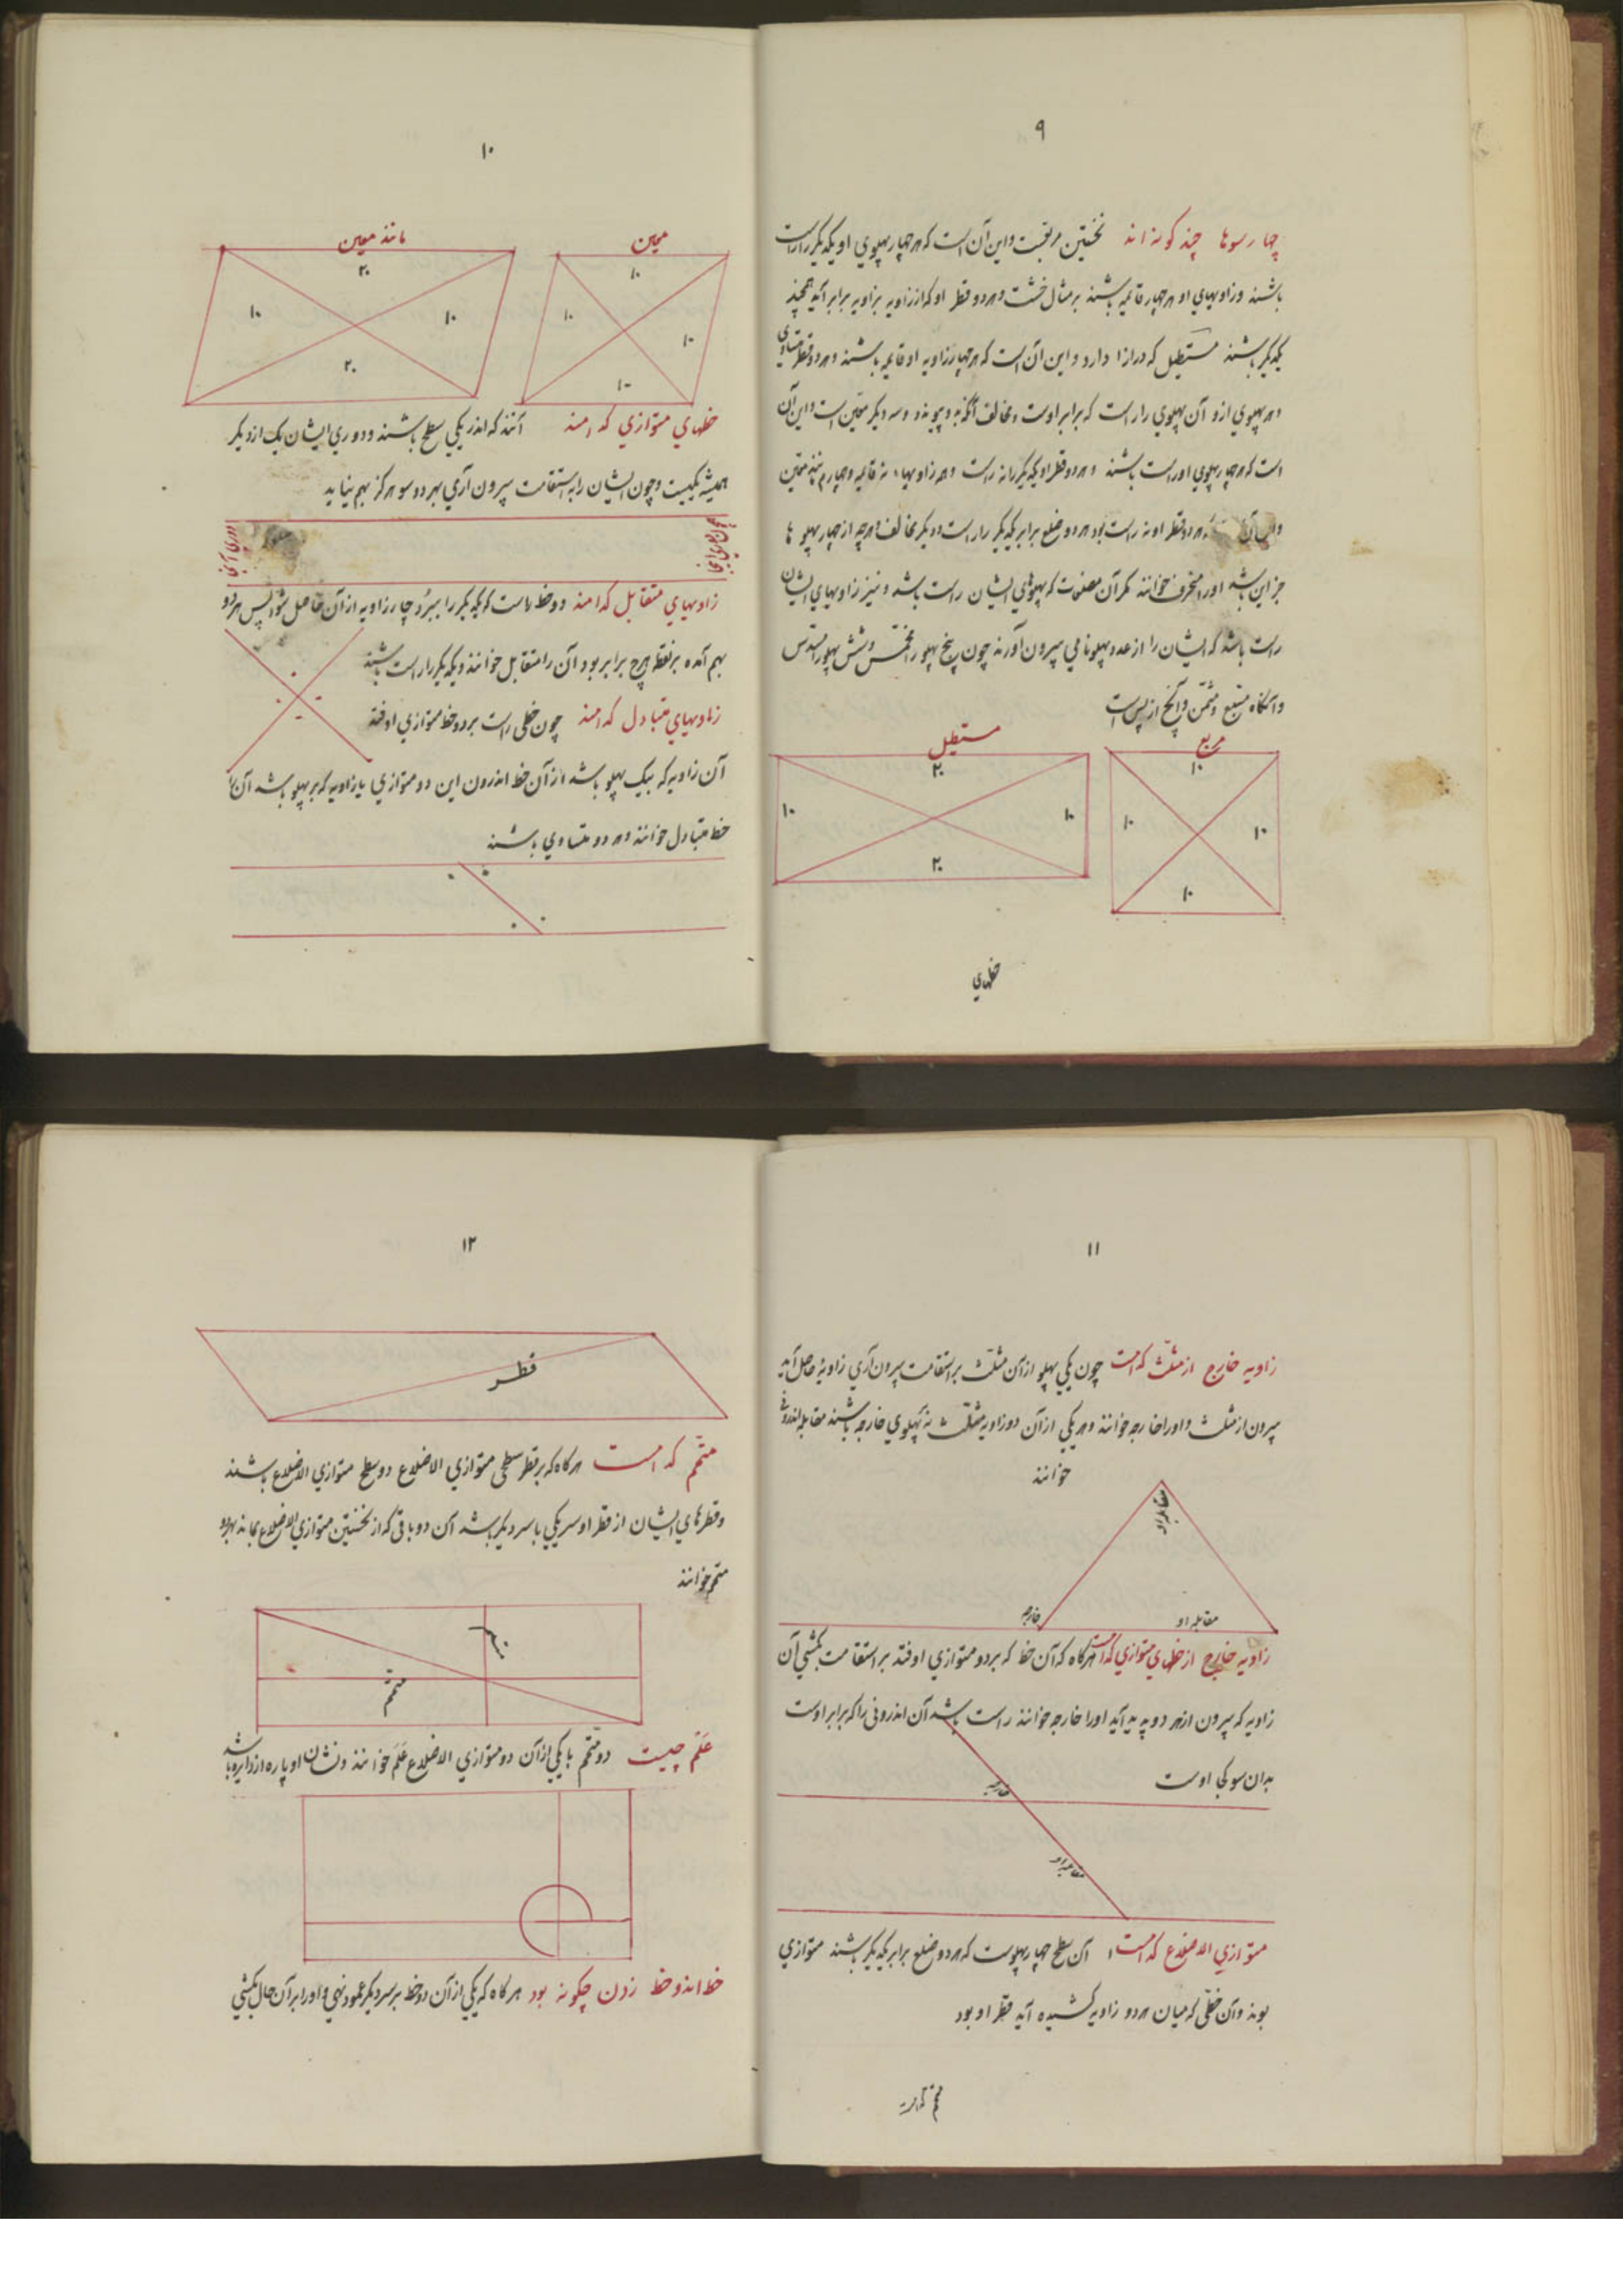 ۹
چهارسوها چند گونه‌اند نخستین مربعست و این آن است که هر چهار پهلوی او یکدیگر را راست
باشند و زاویهای او هر چهار قایمه باشند بر مثال خشت و هر دو قطر او که از زاویه بزاویه برابر آید همچند
یکدیگر باشند مستطیل که درازا دارد و این آن است که هر چهار زاویه او قایمه باشند و هر دو قطر متساوی
و هر پهلوی ازو آن پهلوی را راست که برابر اوست و مخالف آنکه بدو پیوندد و سه دیگر معین است و این آن
است که هر چهار پهلوی او راست باشند و هر دو قطر او یکدیگر را نه راست و همه زاویهاء نه قایمه و چهارم مانند معین
و این آن هر دو قطر او نه راست بود هر دو ضلع برابر یکدیگر را راست و دیگر مخالف و هرچه از چهار پهلو ها
جز این باشد او را منحرف خوانند مگر آن مضلعات که پهلوهای ایشان راست باشد و نیز زاویهای ایشان
راست باشد که ایشان را از عدد پهلو نامی بیرون آورند چون پنج پهلو را مخمس و شش پهلو را مسدس
و آنگاه مسبع و مثمن و آنچ از پس است
مربع
مستطیل
۱۰
۱۰
۱۰
۱۰
۲۰
۱۰
۱۰
۲۰
خطهای
۱۰
معین
مانند معین
۱۰
۱۰
۱۰
۱۰
۲۰
۱۰
۱۰
۲۰
خطهای متوازی کدامند آنند که اندر یکی سطح باشند و دوری ایشان یک از دیگر
همیشه یکیست و چون ایشان را به استقامت بیرون آری بهر دو سو هرگز بهم نیاید
دوری آنجا
زاویهای متقابل کدامند دو خط راست که یکدیگر را ببرد چهار زاویه از آن حاصل شود پس هر دو
بهم آمده بر نقطه هرچ برابر بود آن را متقابل خوانند و یکدیگر را راست باشند
زاویهای متبادل کدامند چون خطی راست بر دو خط متوازی اوفتد
آن زاویه که بیک پهلو باشد از آن خط اندرون این دو متوازی یا زاویه که بر پهلو باشد آن
خط متبادل خوانند و هر دو متساوی باشند
۱۱
زاویه خارج از مثلث کدامست چون یکی پهلو از آن مثلث بر استقامت بیرون آری زاویهٔ حاصل آید
بیرون از مثلث و او را خارجه خوانند و هر یکی از آن دو زاویه مثلث نه پهلوی خارجه باشند مقابله اندرونی
خوانند
مقابله او
خارجه
مقابله او
زاویه خارج از خطهای متوازی کدامست هرگاه که آن خط که بر دو متوازی اوفتد بر استقامت بکشی آن
زاویه که بیرون از هر دو پدید آید او را خارجه خوانند راست باشد آن اندرونی را که برابر اوست
بدان سو کجا اوست
خارجه
مقابله او
متوازی الاضلاع کدامست آن سطح چهار پهلوست که هر دو ضلع برابر یکدیگر باشند متوازی
بوند و آن خطی که میان هر دو زاویه کشیده آید قطر او بود
متمم کدامست
۱۲
قطر
متمم کدامست هرگاه که بر قطر سطحی متوازی الاضلاع دو سطح متوازی الاضلاع باشند
و قطرهای ایشان از قطر او سر یکی با سر دیگر باشد آن دو باقی که از نخستین متوازی الاضلاع بماند بهر دو
متمم خوانند
متمم
متمم
علم چیست دو متمم با یکی از آن دو متوازی الاضلاع علم خوانند و نشان او پاره از دایره باشد
خط اندر خط زدن چگونه بود هرگاه که یکی از آن دو خط بر سر دیگر عمود نهی و او را بر آن حال بکشی